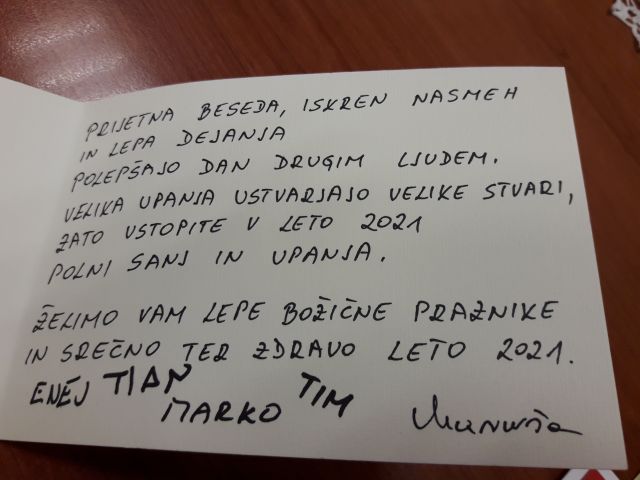 PRIJETNA BESEDA, ISKREN NASMEH
IN LEPA DEJANJA
POLEPŠAJO DAN DRUGIM LJUDEM.
VELIKA UPANJA USTVARJAJO VELIKE STVARI,
ZATO VSTOPITE V LETO 2021
POLNI SANJ IN UPANJA.
ŽELIMO VAM LEPE BOŽIČNE PRAZNIKE
IN SREČNO TER ZDRAVO LETO 2021.
ENEJ TIAN TIM
MARKO